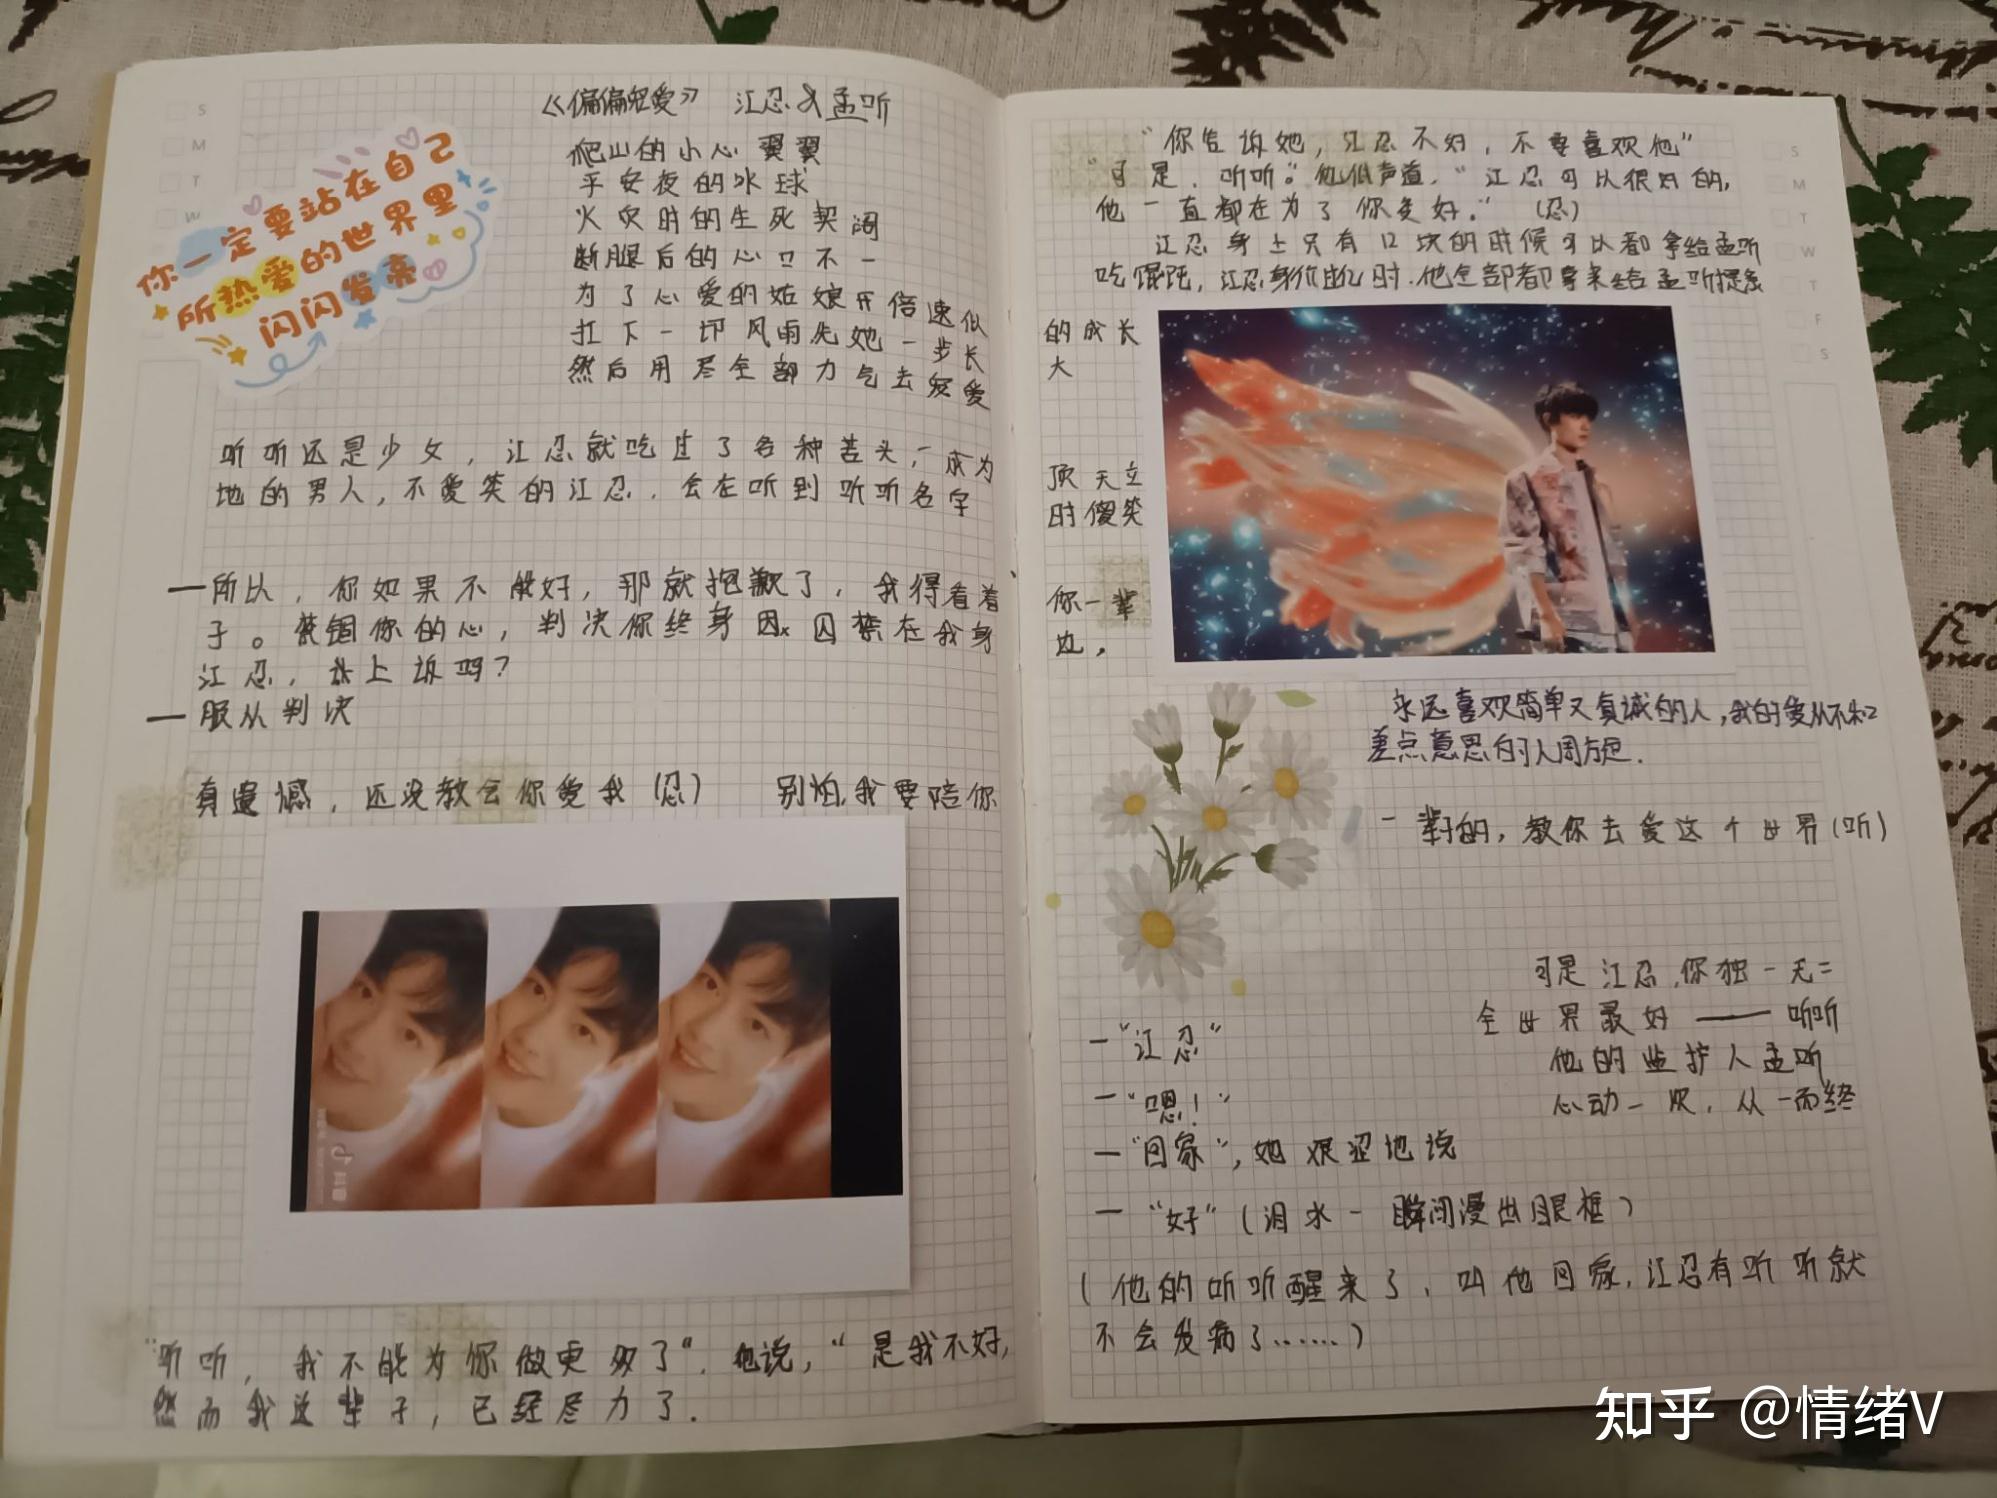 你一定要站在自己
所热爱的世界里
闪闪发亮
《偏偏宠爱》 江忍&孟听
爬山的小心翼翼
平安夜的水球
火灾时的生死契阔
断腿后的心口不一
为了心爱的姑娘开倍速似
扛下一切风雨先她一步长
然后用尽全部力气去宠爱
听听还是少女，江忍就吃过了各种苦头，成为
地的男人，不爱笑的江忍，会在听到听听名字
—所以，你如果不能好，那就抱歉了，我得看着
子。禁锢你的心，判决你终身 囚禁在我身
江忍，要上诉吗？
—服从判决
真遗憾，还没教会你爱我（忍） 别怕，我要陪你
"听听，我不能为你做更多了"，他说，"是我不好，
然而我这辈子，已经尽力了．
S
M
T
W
"你告诉她，江忍不好，不要喜欢他"
"可是，听听。"他低声道，"江忍可以很好的，
他一直都在为了你变好。"（忍）
江忍身上只有12块的时候可以都拿给孟听
吃馄饨，江忍身价过亿时，他全部都拿来给孟听
的成长
大
顶天立
时傻笑
你一辈
边，
S
M
T
W
T
F
S
永远喜欢简单又真诚的人，我的爱从不和
差点意思的人周旋．
一辈子的，教你去爱这个世界（听）
可是江忍，你独一无二
全世界最好——听听
他的监护人孟听
心动一次，从一而终
—"江忍"
—"嗯！"
—"回家"，她艰涩地说
—"好"（泪水一瞬间漫出眼框）
（他的听听醒来了，叫他回家，江忍有听听就
不会发病了……）
知乎 @情绪V